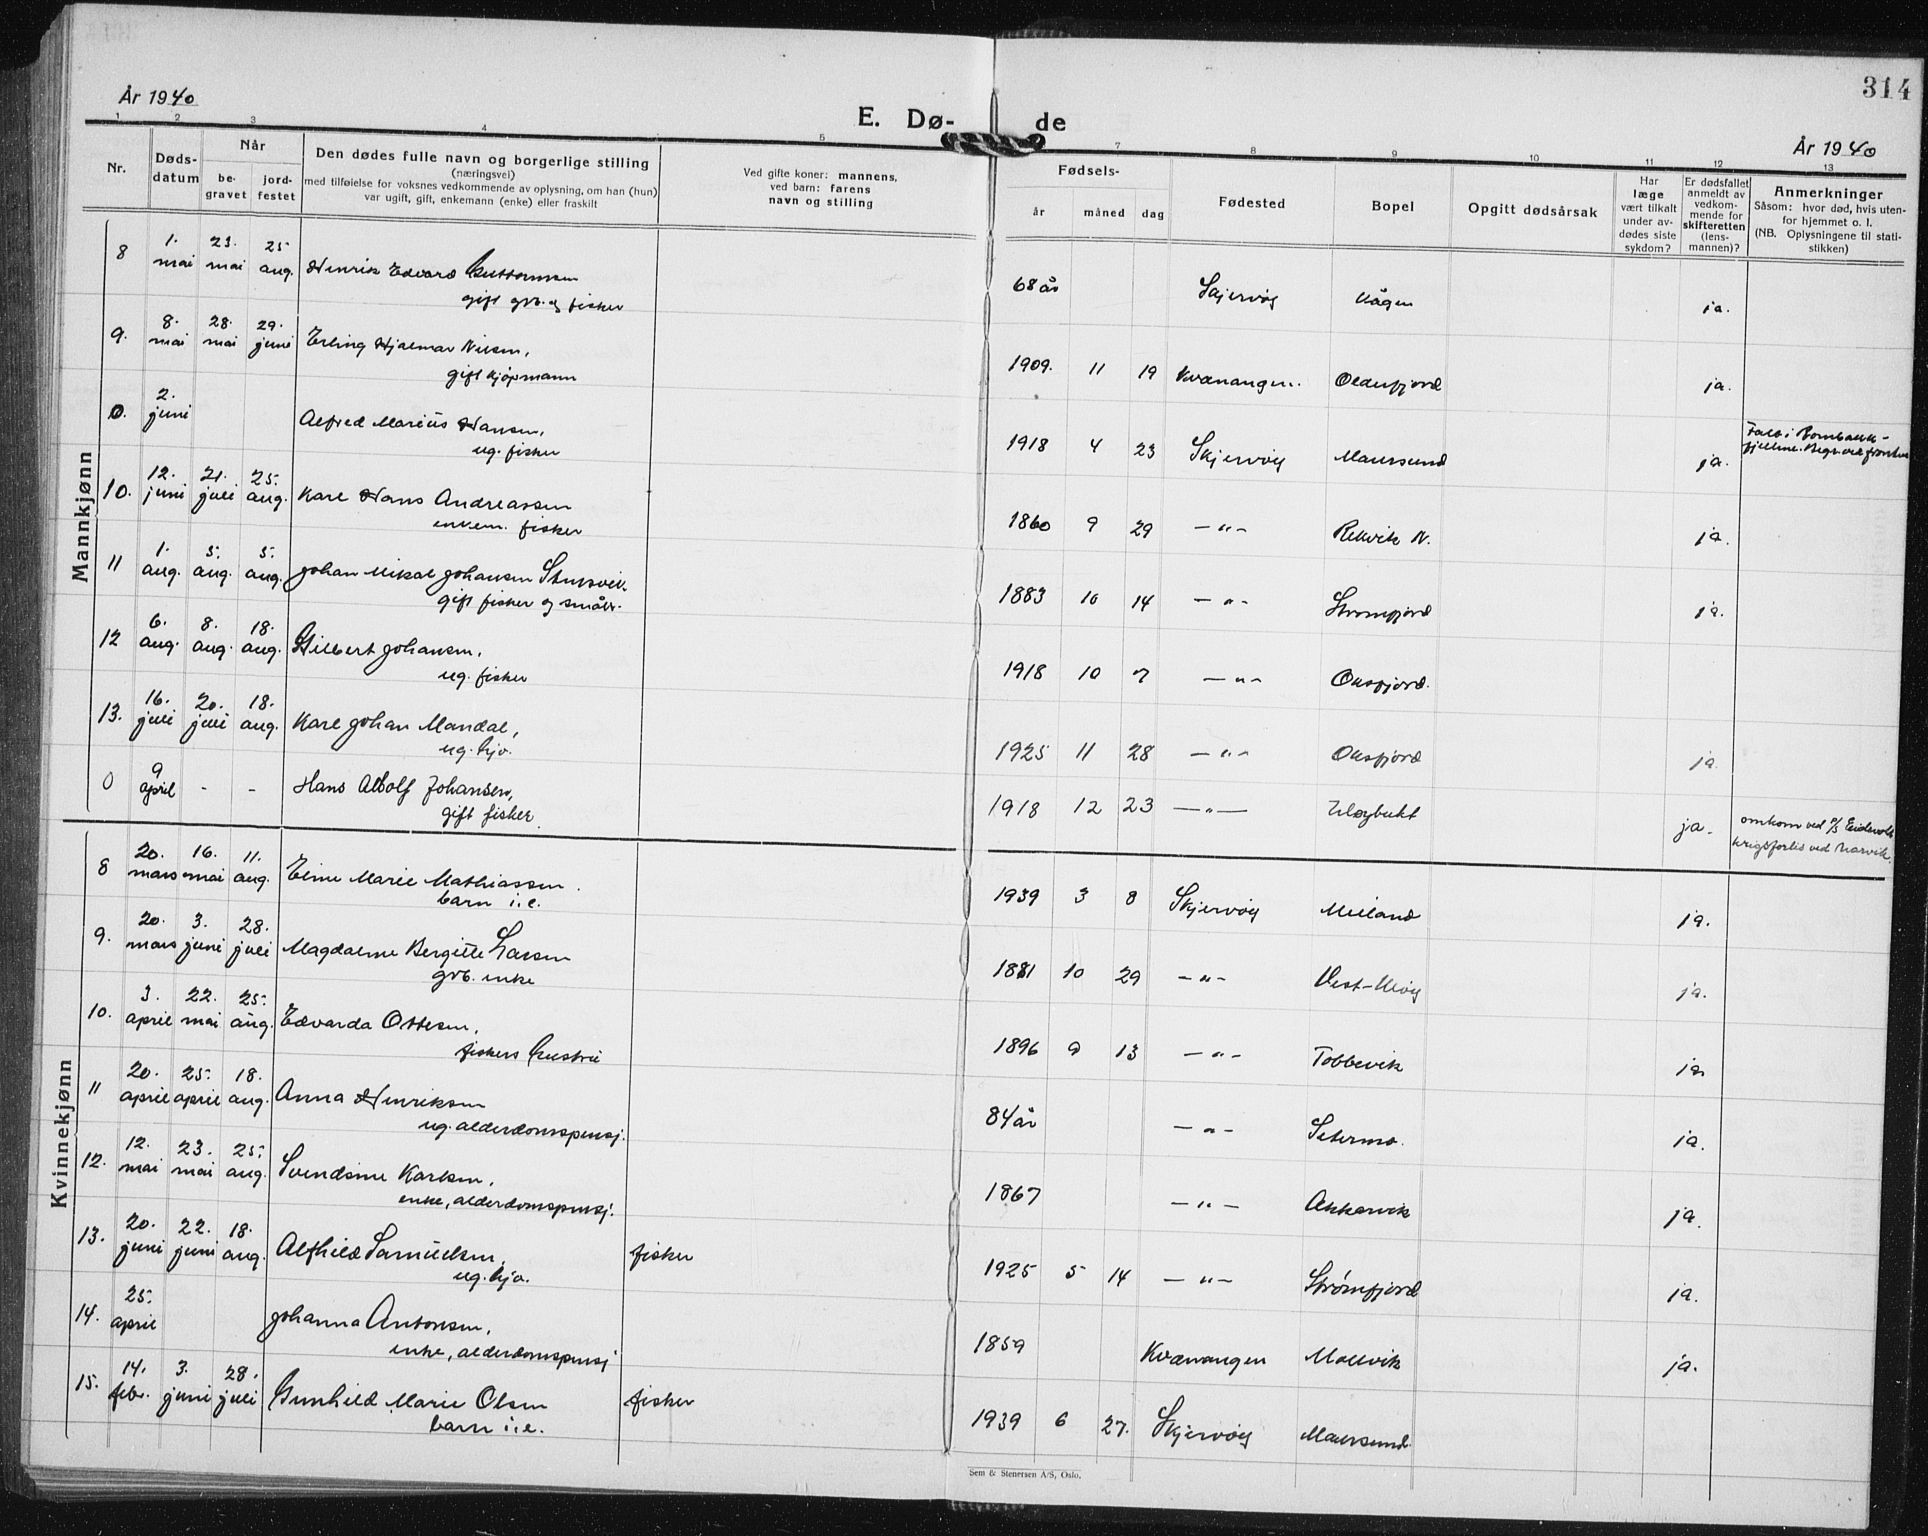 314
År 1940
E. Dø- de
År 1940
1 2 3 4 5 7 8 9 10 11 12 13
Nr.
Døds-datum
Når
be-gravet
jord-festet
Den dødes fulle navn og borgerlige stilling
(næringsvei)
med tilføielse for voksnes vedkommende av oplysning, om han (hun)
var ugift, gift, enkemann (enke) eller fraskilt
Ved gifte koner: mannens,
ved barn: farens
navn og stilling
Fødsels-
år måned dag
Fødested
Bopel
Opgitt dødsårsak
Har læge vært tilkalt under av-dødes siste sykdom?
Er dødsfallet anmeldt av vedkom-mende for skifteretten (lens-mannen)?
Anmerkninger
Såsom: hvor død, hvis uten-
for hjemmet o. l.
(NB. Oplysningene til stati-
stikken)
Mannkjønn
8 1. mai 23. mai 25 aug. Henrik Edvard Guttormsen 68 år Skjervøy Kågen ja.
gift grb. og fisker
9. 8. mai 28. mai 29. juni Erling Hjalmar Nilsen, 1909. 11 19 Kvænangen. Olderfjord ja.
gift kjøpmann
0. 2. juni Alfred Marius Hansen, 1918 4 23 Skjervøy Maursund ja. Falt i
ug. fisker
10. 12. juni 21. juli 25. aug. Karl Hans Andreassen 1860 9 29 -"- Rekvik N. ja.
enkem. fisker
11 1. aug. 5. aug. 5. aug. Johan Mikal Johansen 1883 10 14 -"- Strømfjord ja.
gift fisker og småbr.
12 6. aug. 8. aug. 18. aug. Gilbert Johansen, 1918 10 7 -"- Oksfjord. ja.
ug. fisker
13. 16. juli 20. juli 18. aug. Karl Johan Mandal, 1925 11 28 -"- Oksfjord ja.
ug. hjv.
0 9 april - - Hans Adolf Johansen, 1918 12 23 -"- Uløybukt ja. omkom ved P/S Eidsvold
gift fisker krigsforlis ved Narvik.
Kvinnekjønn
8 20. mars 16. mai 11. aug. Eline Marie Mathiassen. 1939 3 8 Skjervøy Meiland ja.
barn i.e.
9. 20. mars 3. juni 28. juli Magdalene Bergitte Larsen 1881 10 29 -"- Vest-Uløy ja.
grb. enke
10. 3. april 22. mai 25. aug. Edvarda Ottesen, 1896 9 13 -"- Tobbevik ja
fiskers hustru
11 20. april 25. april 18. aug. Anna Henriksen 84 år -"- Setermo. ja.
ug. alderdomspensj.
12. 12. mai 23. mai 25. aug. Svendsine Karlsen, 1867 -"- Akkarvik ja.
enke, alderdomspensj.
13. 20. juni 22. juni 18. aug. Alfhild Samuelsen, fisker 1925 5 14 -"- Strømfjord ja.
ug. hjv.
14. 25. april Johanna Antonsen, 1859 Kvænangen Mollvik ja.
enke, alderdomspensj
15. 14. febr. 3. juni 28. juli Gunhild Marie Olsen fisker 1939 6 27. Skjervøy Maursund.
barn i.e.
Sem & Stenersen A/S, Oslo.